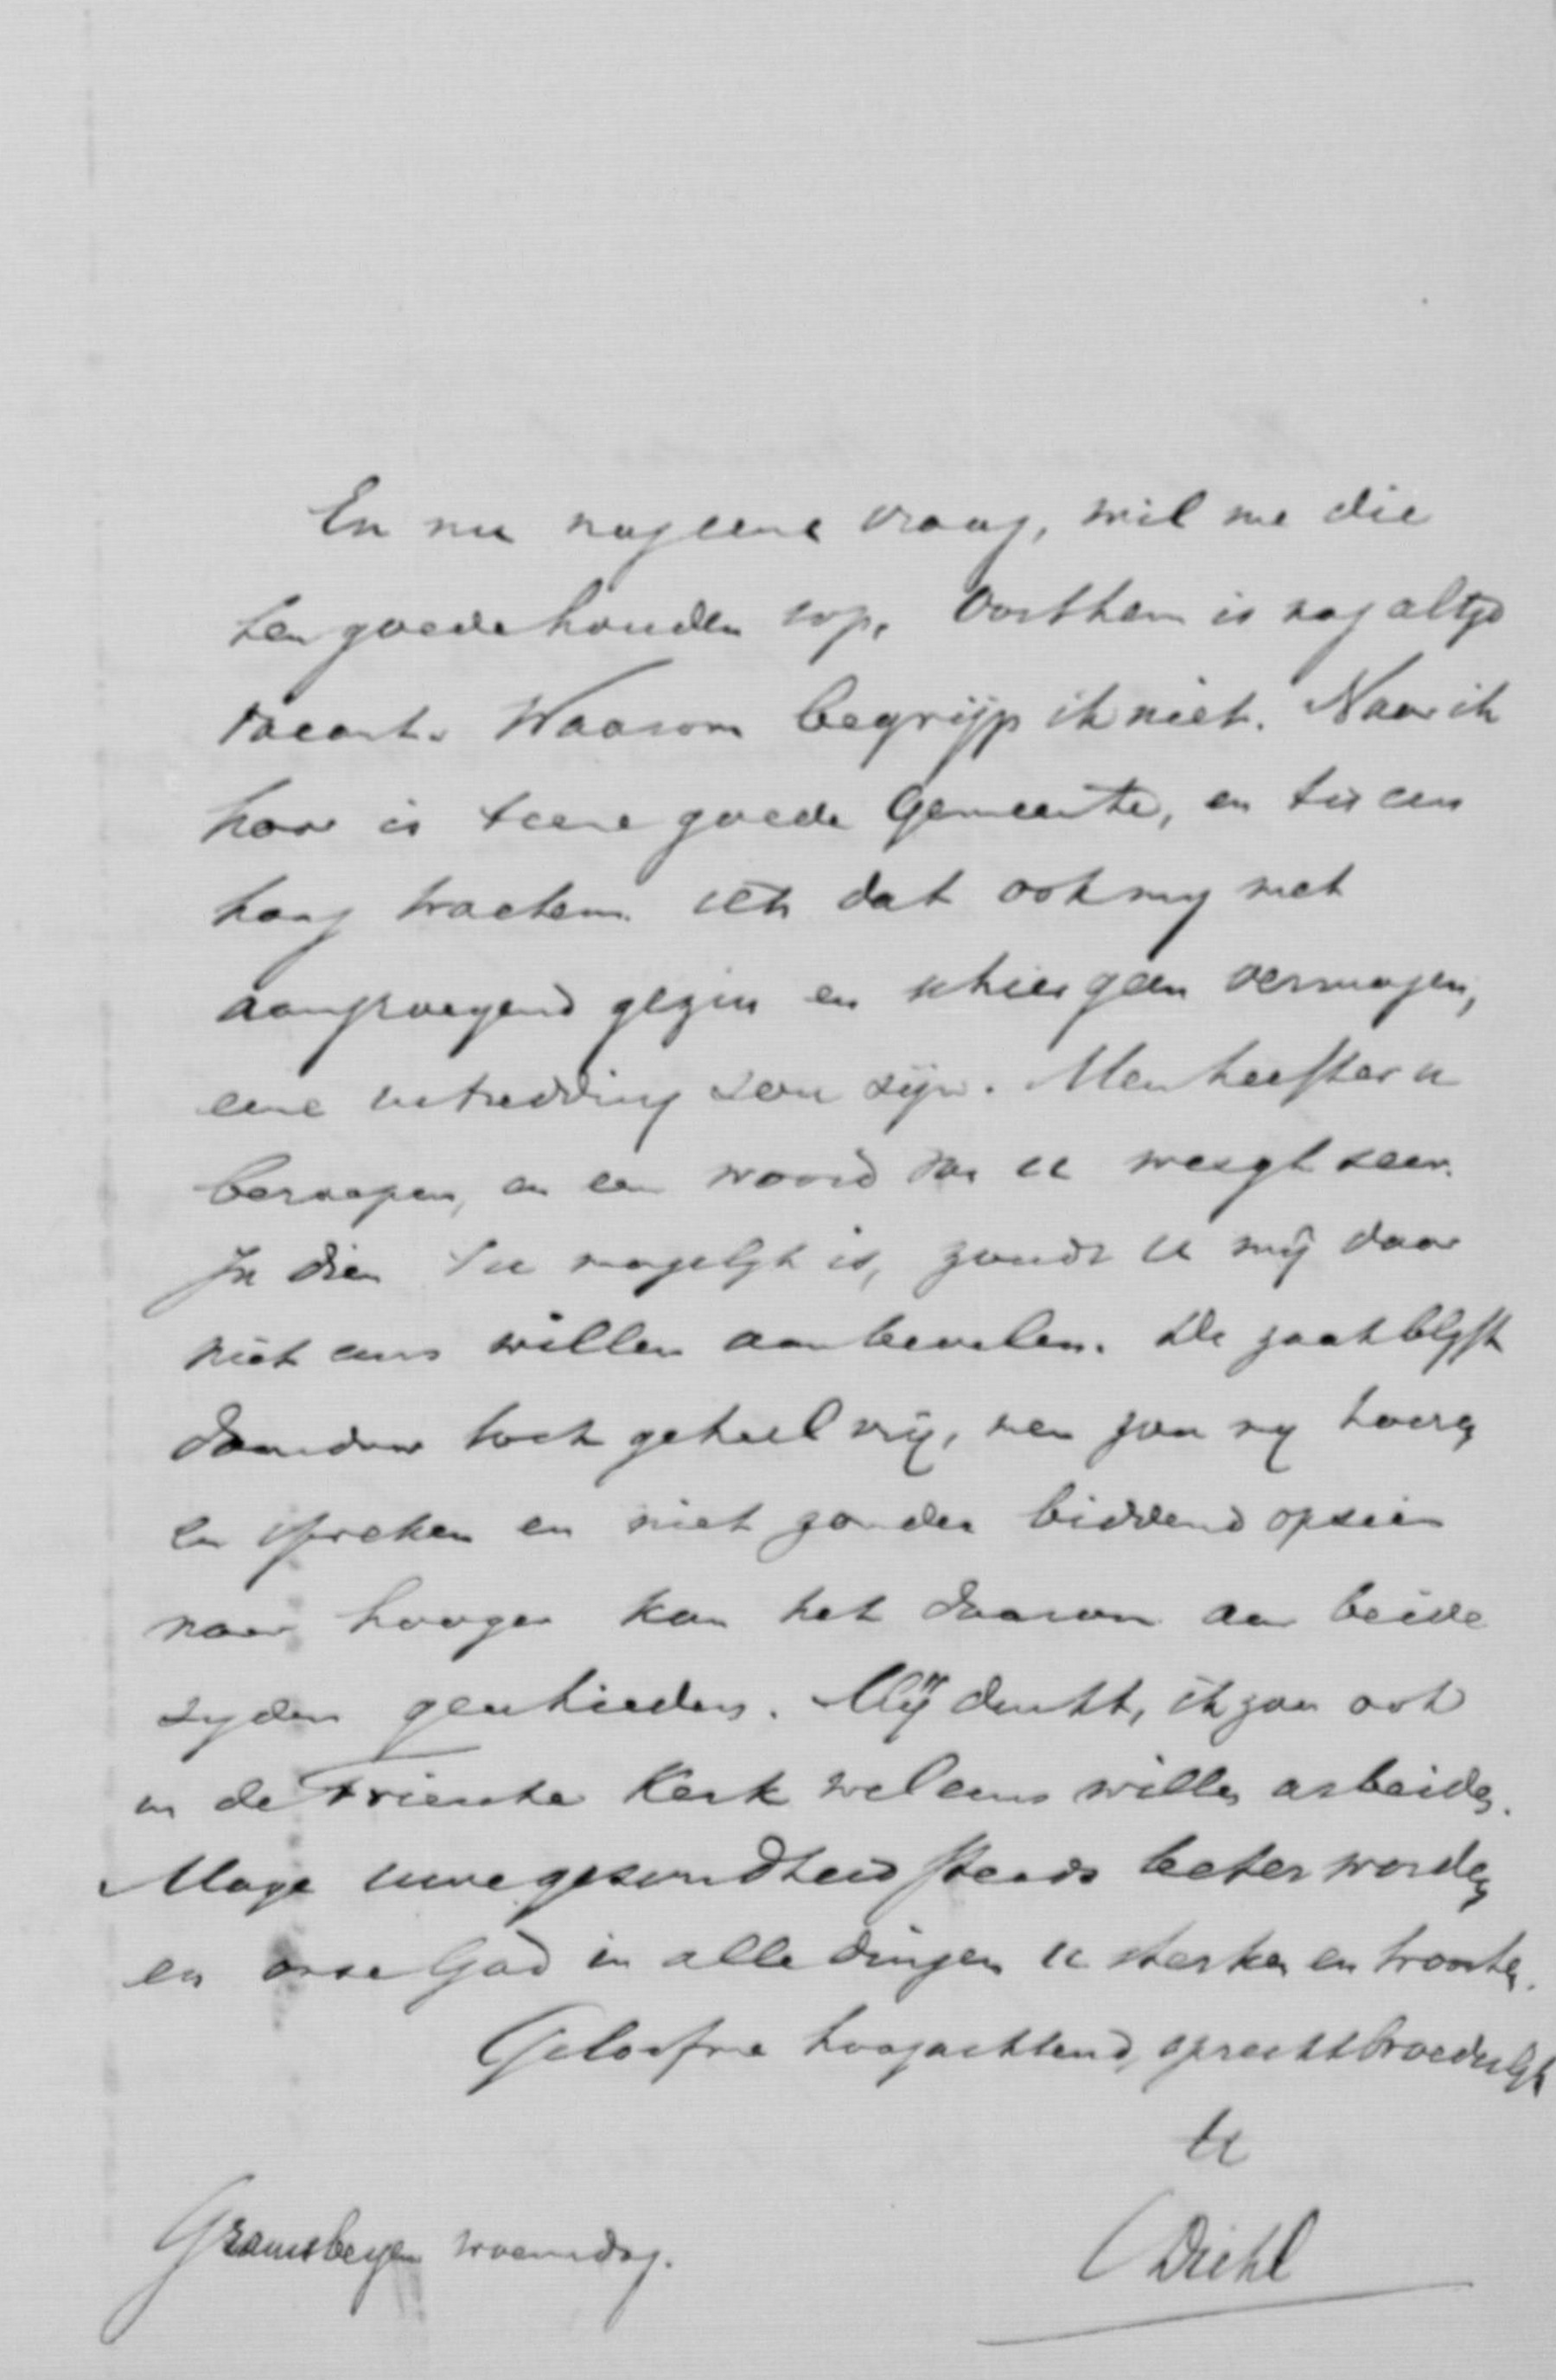 En nu nog eene vraag, wil me die
ten goede houden svp. Oosthem is nog altijd
vacant. Waarom begrijp ik niet. Naar ik
hoor is 't eene goede Gemeente, en tis een
hoog tractem. iets dat ook my met
aangroeyend gezin en schier geen vermogen,
eene uitredding zou zijn. Men heeft er u
beroepen, en een woord van u weegt zeer.
In dien 't u mogelyk is, zoudt u mij daar
niet eens willen aanbevelen. De zaak blyft
daardoor toch geheel vrij, men zou my hooren
en spreken en niet zonder biddend opzien
naar hooger kan het daarom aan beide
zyden geschieden. Mij dunkt, ik zou ook
in de Friesche Kerk wel eens willen arbeiden.
Moge uwe gezondheid steeds beter worden
en onze God in alle dingen u sterken en troosten.
Geloof me hoogachtend, oprecht broederlyk
U
CDiehl
Gramsbergen woensdag.